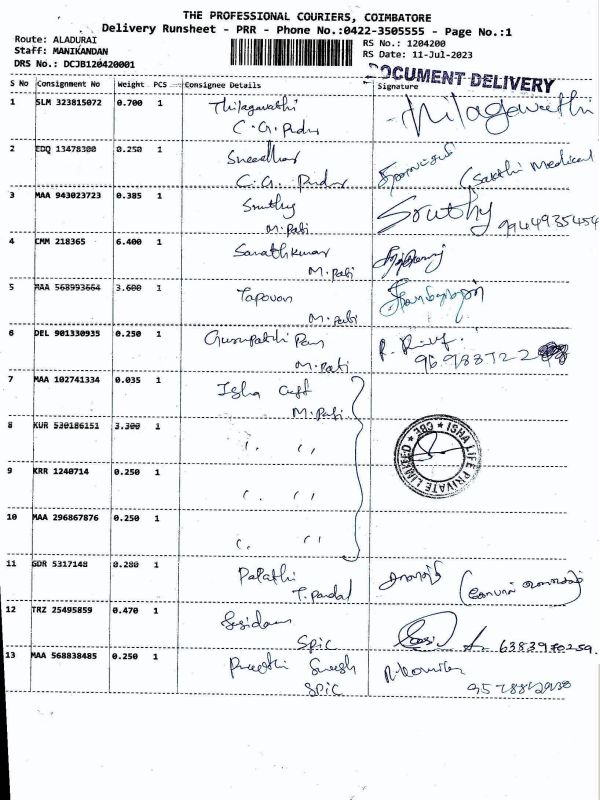 THE PROFESSIONAL COURIERS, COIMBATORE
Delivery Runsheet - PRR - Phone No.:0422-3505555 - Page No.:1
Route: ALADURAI
Staff: MANIKANDAN
DRS No.: DCJB120420001
RS No.: 1204200
RS Date: 11-Jul-2023
DOCUMENT DELIVERY
S No Consignment No Weight PCS Consignee Details Signature
1 SLM 323815072 0.700 1 Thilagavathi Thilagavathi
C.G. Pudur
2 EDQ 13478300 0.250 1 Sreedhar (Sakthi Medical
C.G. Pudur
3 MAA 943023723 0.385 1 Sruthy Sruthy 9944935454
M.Pati
4 CMM 218365 6.400 1 Sarathkumar
M.Pati
5 MAA 568993664 3.600 1 Tapovan
M.Pati
6 DEL 901330935 0.250 1
M.Pati
7 MAA 102741334 0.035 1 Isha
M.Pati
8 KUR 530186151 3.300 1 " "
ISHA LIFE PRIVATE LIMITED * CBE *
9 KRR 1240714 0.250 1 " "
10 MAA 296867876 0.250 1 " "
11 GDR 5317148 0.280 1 Papathi
12 TRZ 25495859 0.470 1
SPIC 6383970259
13 MAA 568838485 0.250 1 Preethi Suresh
SPIC